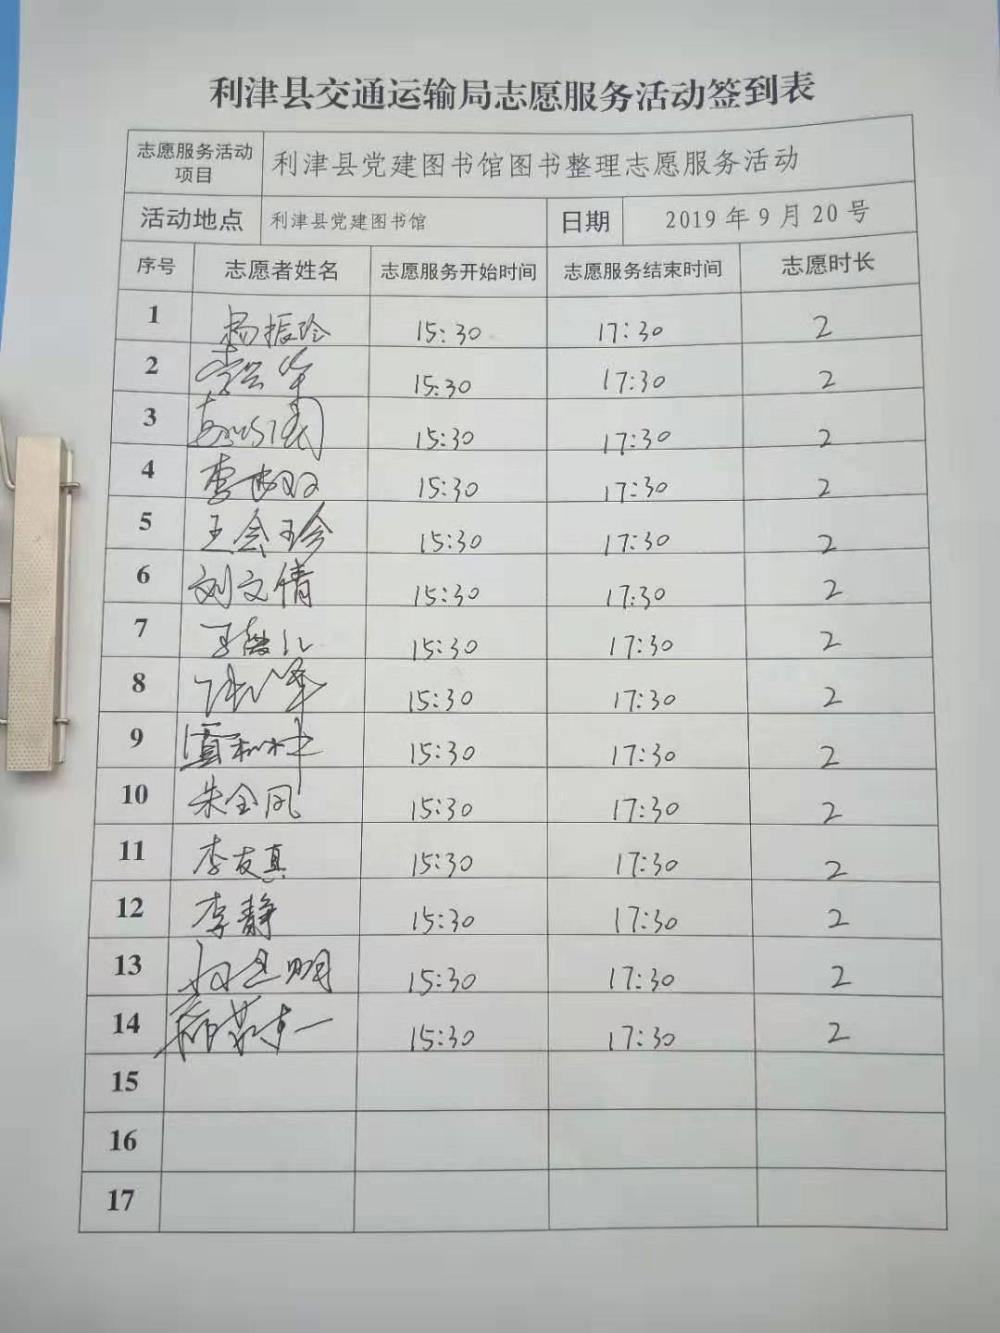 利津县交通运输局志愿服务活动签到表
志愿服务活动项目 利津县党建图书馆图书整理志愿服务活动
活动地点 利津县党建图书馆 日期 2019年9月20号
序号 志愿者姓名 志愿服务开始时间 志愿服务结束时间 志愿时长
1 杨振玲 15:30 17:30 2
2 15:30 17:30 2
3 15:30 17:30 2
4 李 15:30 17:30 2
5 王会珍 15:30 17:30 2
6 刘文倩 15:30 17:30 2
7 王 15:30 17:30 2
8 15:30 17:30 2
9 15:30 17:30 2
10 朱金凤 15:30 17:30 2
11 李友真 15:30 17:30 2
12 李静 15:30 17:30 2
13 明 15:30 17:30 2
14 15:30 17:30 2
15
16
17